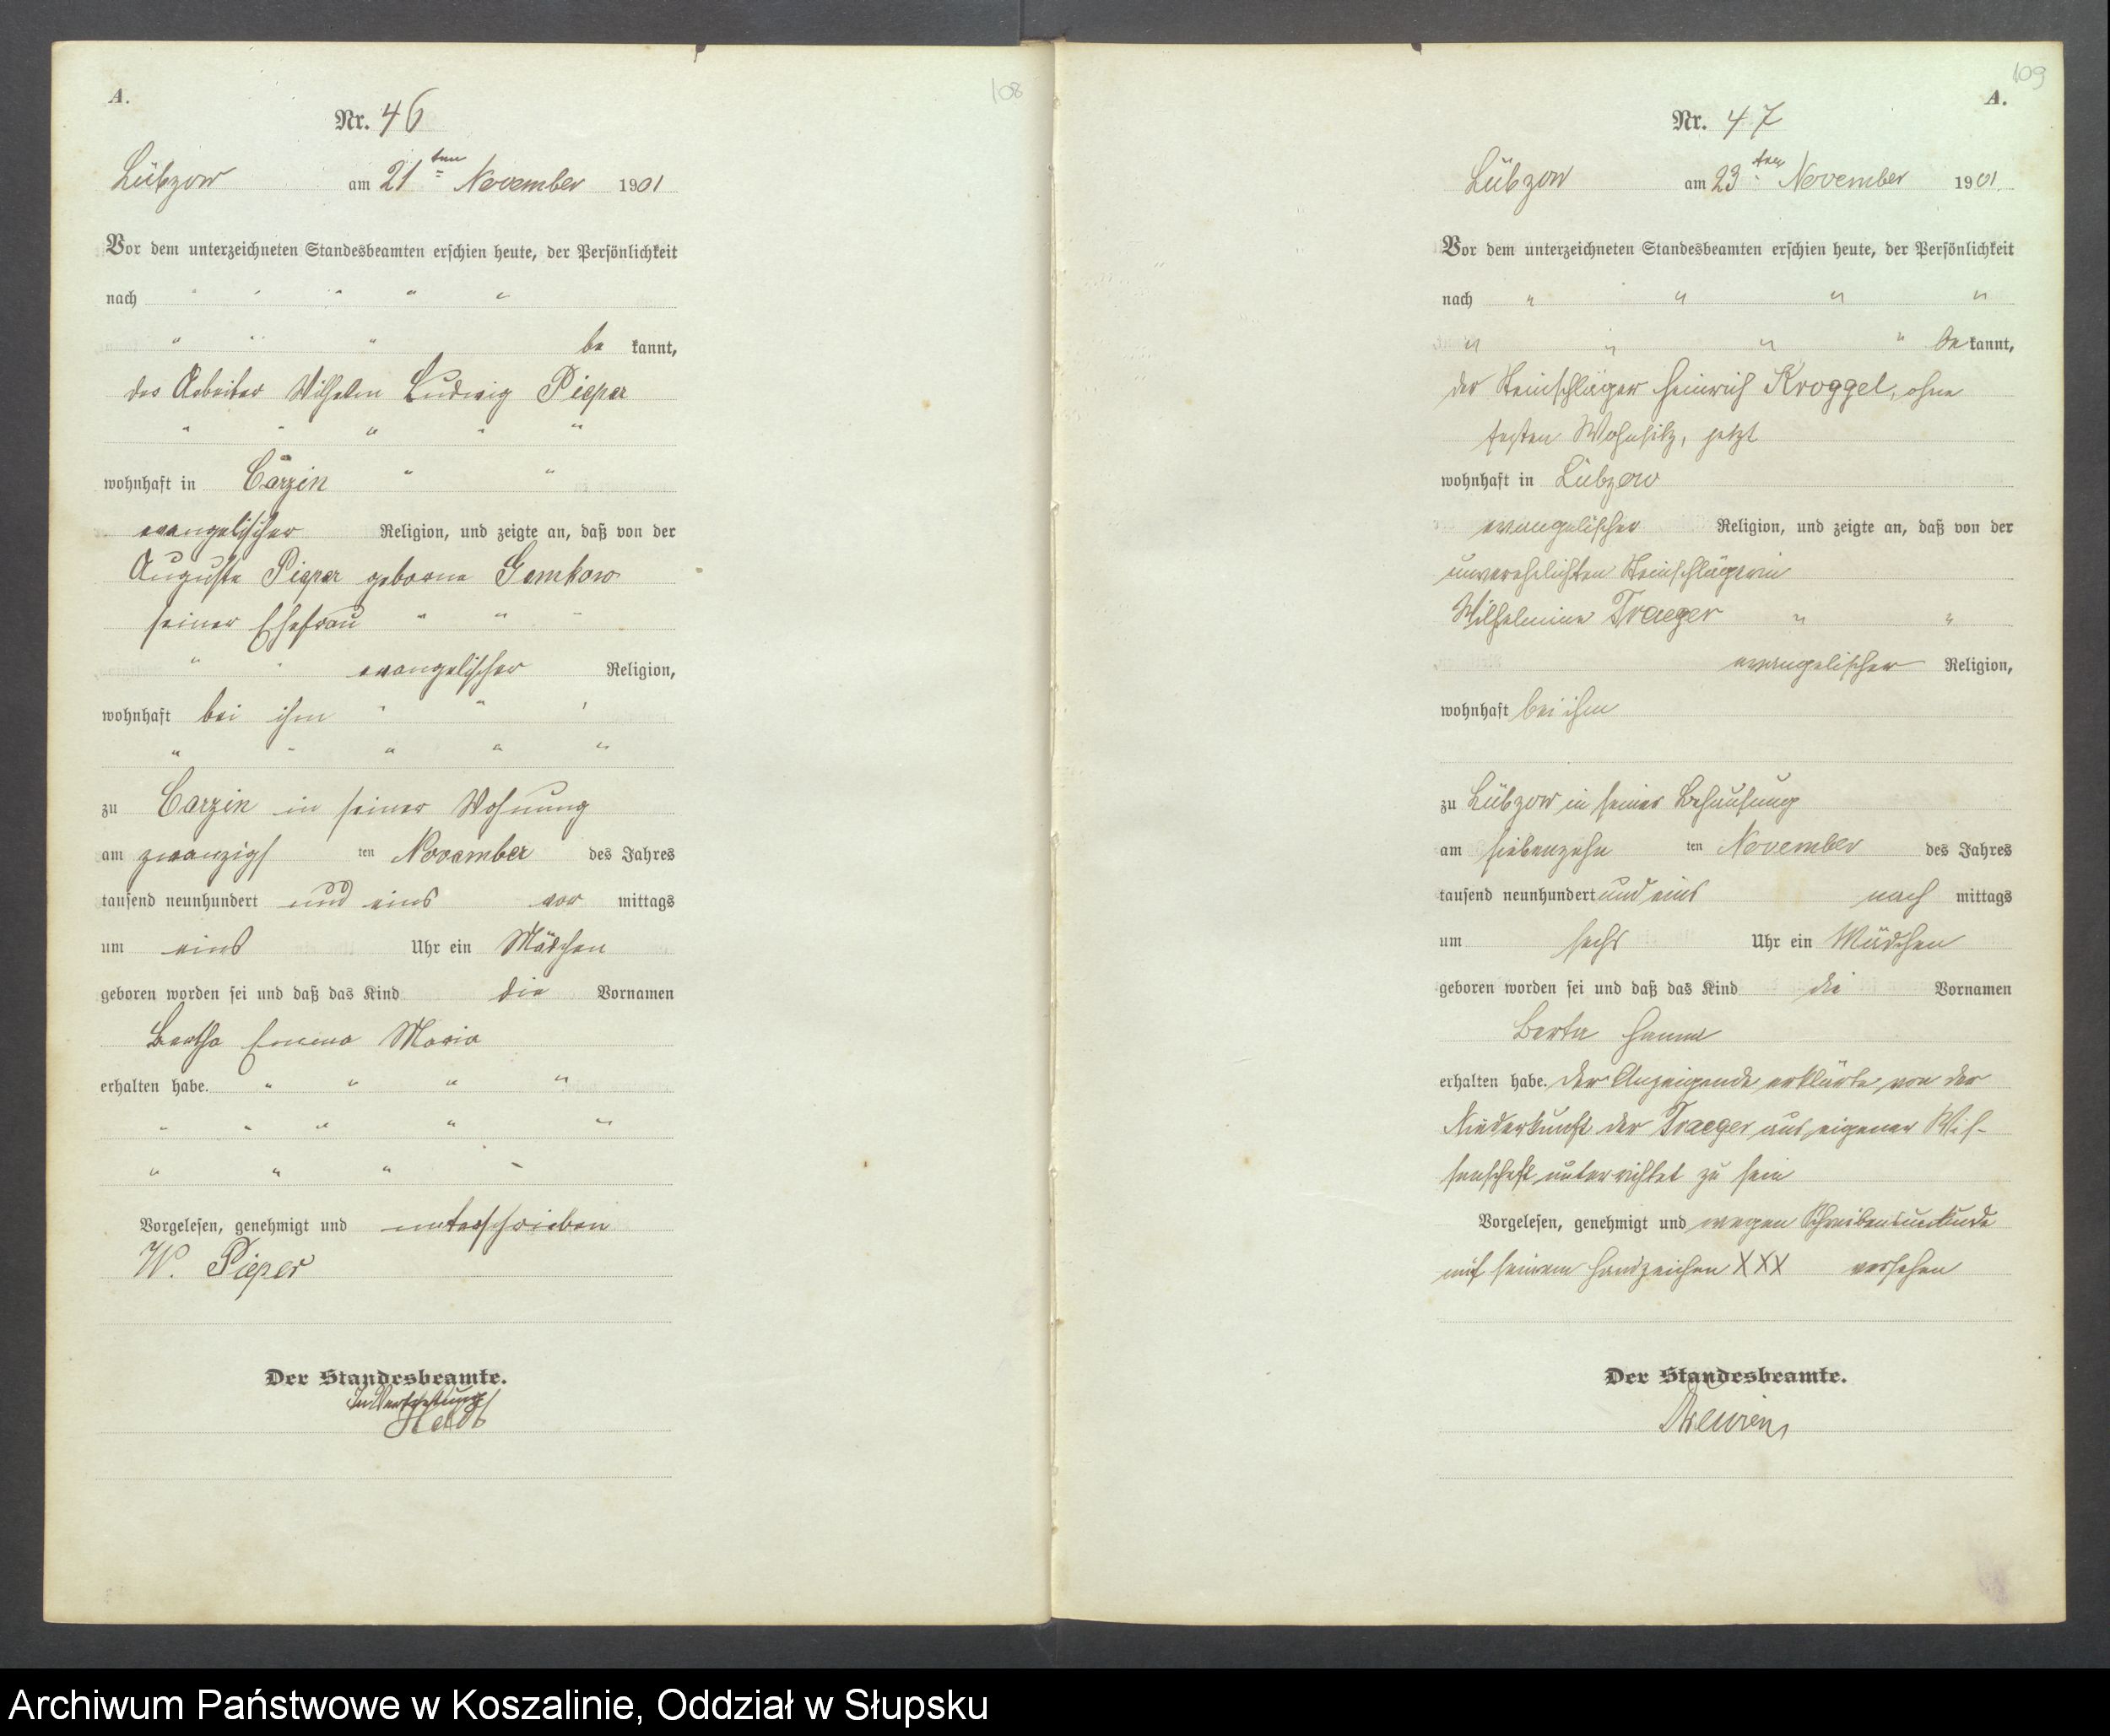 108
A.
Nr. 46
Lübzow am 21ten November 1901
Vor dem unterzeichneten Standesbeamten erschien heute, der Persönlichkeit
nach " " " " "
" " " be kannt,
der Arbeiter Wilhelm Ludwig Pieper
" " " " "
wohnhaft in Carzin " "
evangelischer Religion, und zeigte an, daß von der
Auguste Pieper geborne Gemkow
seiner Ehefrau " " "
" " evangelischer Religion,
wohnhaft bei ihm " " "
" " " " "
zu Carzin in seiner Wohnung
am zwanzigs ten November des Jahres
tausend neunhundert und eins vor mittags
um eins Uhr ein Mädchen
geboren worden sei und daß das Kind die Vornamen
Bertha Emma Maria
erhalten habe. " " " "
" " " " "
" " " "
Vorgelesen, genehmigt und unterschrieben
W. Pieper
Der Standesbeamte.
In Vertretung
109
A.
Nr. 47
Lübzow am 23ten November 1901
Vor dem unterzeichneten Standesbeamten erschien heute, der Persönlichkeit
nach " " " "
" " " " be kannt,
der Steinschläger Heinrich Kroggel, ohne
festen Wohnsitz, jetzt
wohnhaft in Lübzow
evangelischer Religion, und zeigte an, daß von der
unverehelichten Steinschlägerin
Wilhelmine Traeger " "
evangelischer Religion,
wohnhaft bei ihm
zu Lübzow in seiner Behausung
am siebenzehn ten November des Jahres
tausend neunhundert und eins nach mittags
um sechs Uhr ein Mädchen
geboren worden sei und daß das Kind die Vornamen
Berta
erhalten habe. Der Anzeigende erklärte von der
Niederkunft der Traeger aus eigener Wis-
senschaft unterrichtet zu sein
Vorgelesen, genehmigt und wegen Schreibensunkunde
mit seinem Handzeichen XXX versehen
Der Standesbeamte.
Archiwum Państwowe w Koszalinie, Oddział w Słupsku